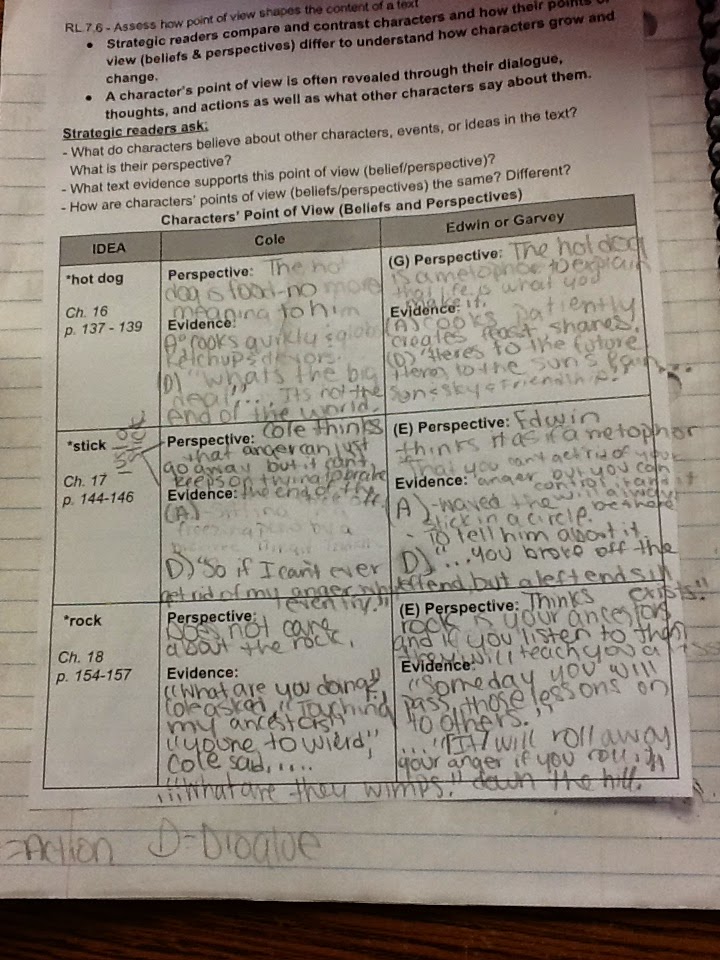 RL.7.6 - Assess how point of view shapes the content of a text
• Strategic readers compare and contrast characters and how their points of
view (beliefs & perspectives) differ to understand how characters grow and
change.
• A character's point of view is often revealed through their dialogue,
thoughts, and actions as well as what other characters say about them.
Strategic readers ask:
- What do characters believe about other characters, events, or ideas in the text?
What is their perspective?
- What text evidence supports this point of view (belief/perspective)?
- How are characters' points of view (beliefs/perspectives) the same? Different?
Characters' Point of View (Beliefs and Perspectives)
IDEA
Cole
Edwin or Garvey
*hot dog
Ch. 16
p. 137 - 139
Perspective: The hot
dog is food-no more
meaning to him
Evidence:
A° cooks quickly &
ketchup
D) "whats the big
deal"... Its not the
end of the world.
(G) Perspective: The hot dog
is a metophor to explain
that life is what you
make it.
Evidence:
(A) cooks patiently
creates feast shares.
(D) "Heres to the future
Heres to the sun's
sun & sky &
*stick
Ch. 17
p. 144-146
Perspective: Cole thinks
that anger can just
go away but it can't
keeps on
Evidence: the end of the
(A)
by a
D) "So if I can't ever
get rid of my anger, why
even try."
(E) Perspective: Edwin
thinks it as if a metophor
that you cant get rid of your
anger but you can
control it and it
will always
be there
Evidence:
A) -waved the
stick in a circle.
- To tell him about it.
D) "...you broke off the
left end, but a left end still
exists."
*rock
Ch. 18
p. 154-157
Perspective:
Does not care
about the rock.
Evidence:
"What are you doing"
Cole asked, "Touching
my ancestors"
"youre to wierd,"
Cole sad, ....
..."What are they wimps."
(E) Perspective: Thinks
rock is your ancestors
and if you listen to them
they will teach you a
Evidence:
"Someday you will
pass those lessons on
to others."
..."[It] will roll away
your anger if you roll it
down the hill.
=Action D=Dioalue